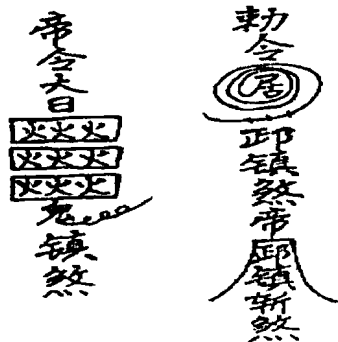 勅令
居
卸镇煞帝
卸镇斩煞
帝令大日
火火火
火火火
火火火
鬼
镇煞